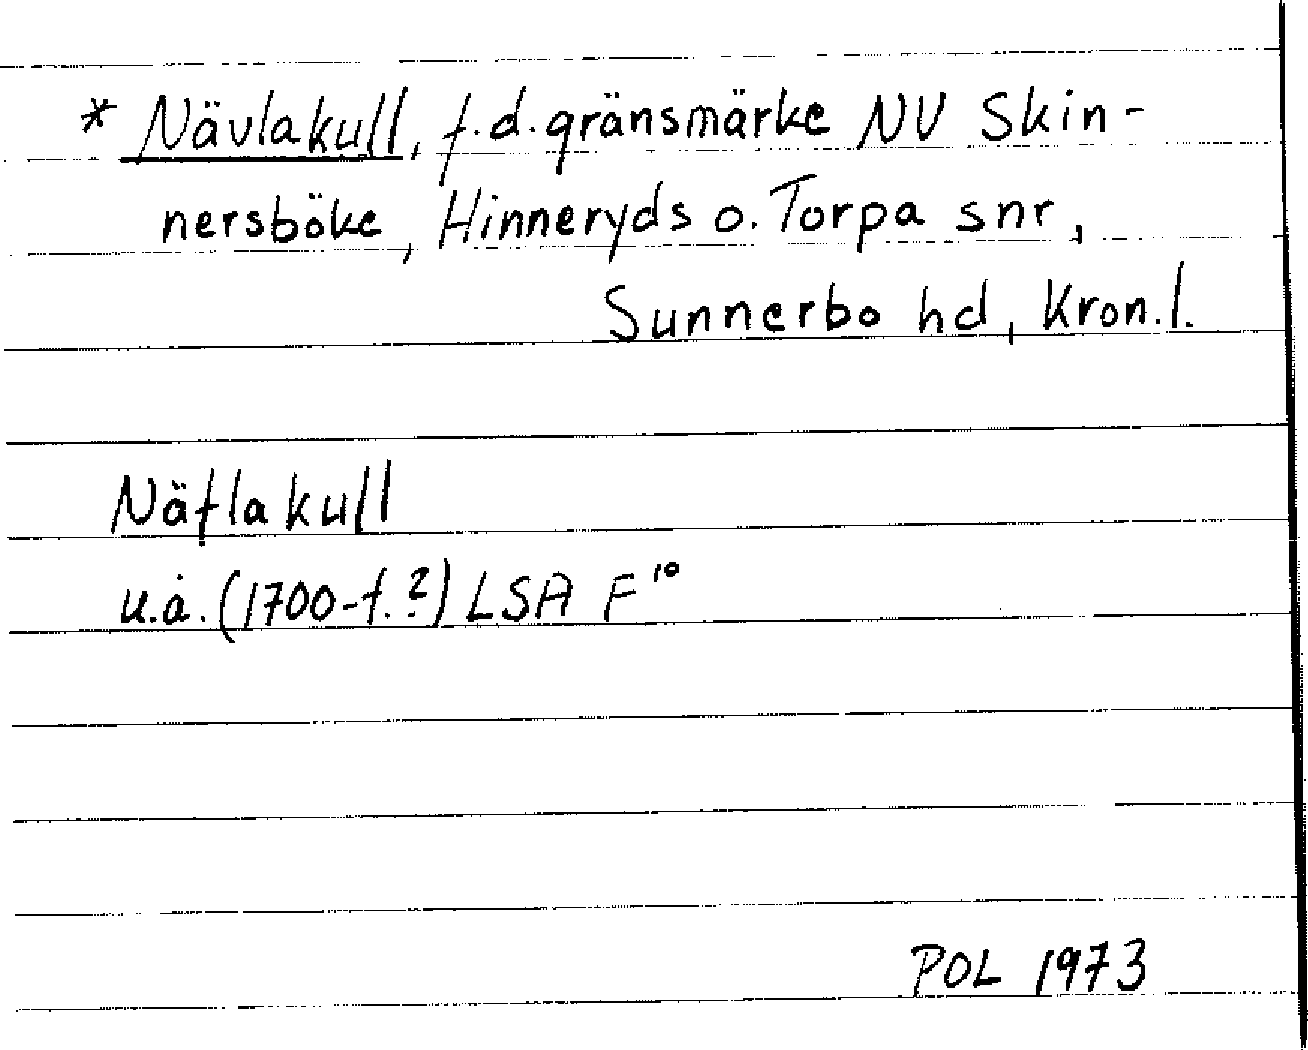 * Nävlakull, f.d. gränsmärke NV Skin-
nersböke, Hinneryds o. Torpa snr,
Sunnerbo hd, Kron.l.
Näflakull
u.å. (1700-t.?) LSA F¹⁰
POL 1973